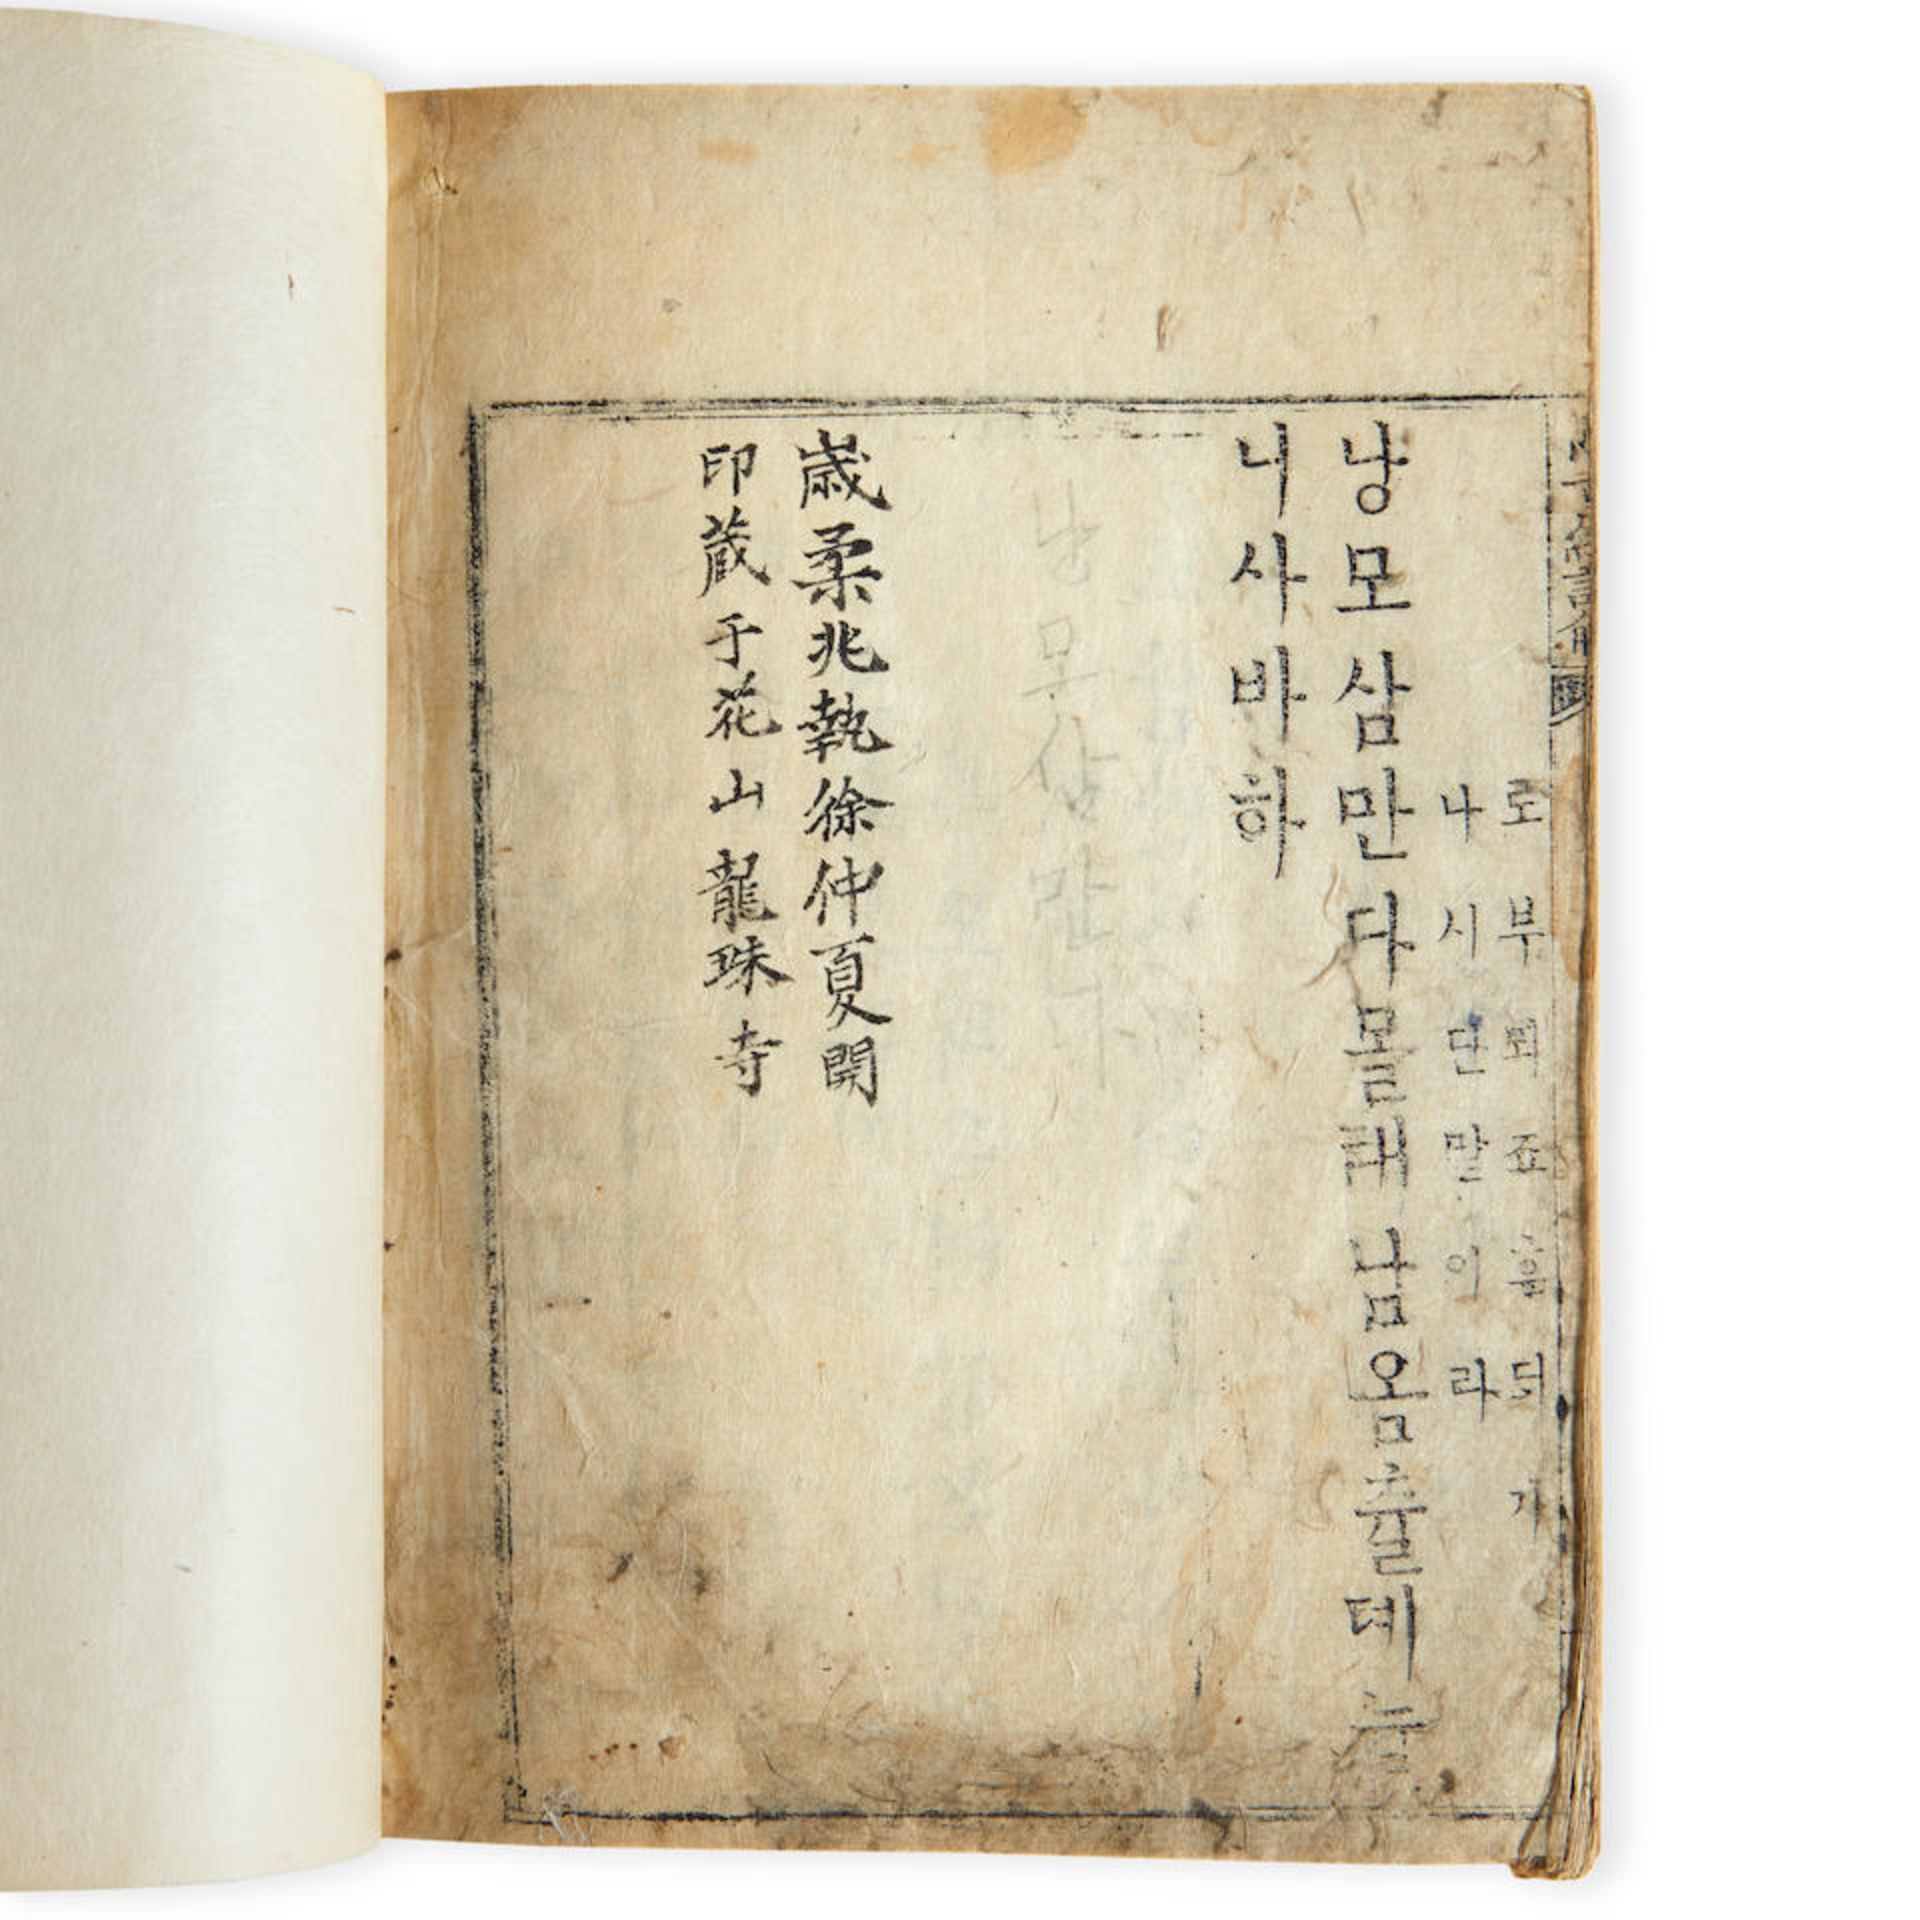 로부뫼죠을더가
나시단말이라
낭모삼만다몯래남옴츌뎨
니사바하
낭모삼만
歲柔兆執徐仲夏開
印蔵于花山龍珠寺